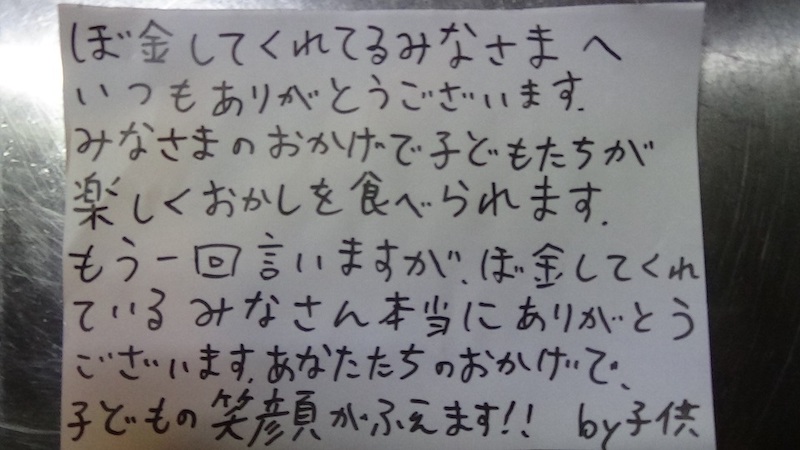 ぼ金してくれてるみなさまへ
いつもありがとうございます.
みなさまのおかげで子どもたちが
楽しくおかしを食べられます.
もう一回言いますが、ぼ金してくれ
ているみなさん本当にありがとう
ございます.あなたたちのおかげで、
子どもの笑顔がふえます!! by子供